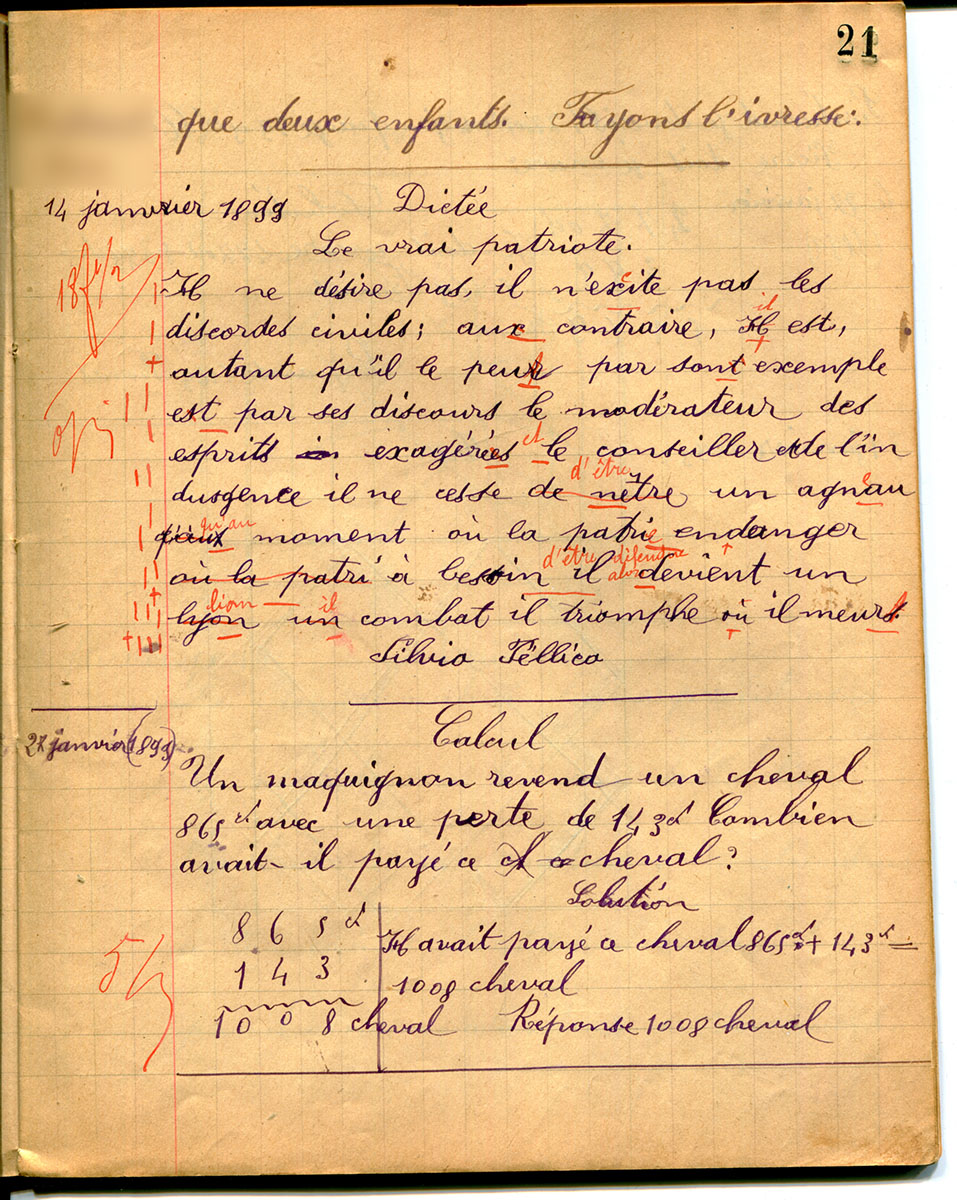 21
que deux enfants. Fuyons l'ivresse.
14 janvier 1899 Dictée
Le vrai patriote.
18f 1/2
Il ne désire pas, il n'excite pas les
discordes civiles; aux contraire, Il est,
il
autant qu'il le peut par sont exemple
est par ses discours le modérateur des
esprits exagérées et le conseiller de l'in
d'être
dusgence il ne cesse de nêtre un agneau
qu'au
moment où la patrie endanger
d'être défendue
alors
où la patri à besoin il devient un
lion il
lyon un combat il triomphe où il meurt
Silvio Péllico
27 janvier (1899)
Calcul
Un maquignon revend un cheval
865f avec une perte de 143f Combien
avait-il payé ce cheval?
Solution
865f
143
1008 cheval
Il avait payé ce cheval 865f + 143f =
1008 cheval
Réponse 1008 cheval